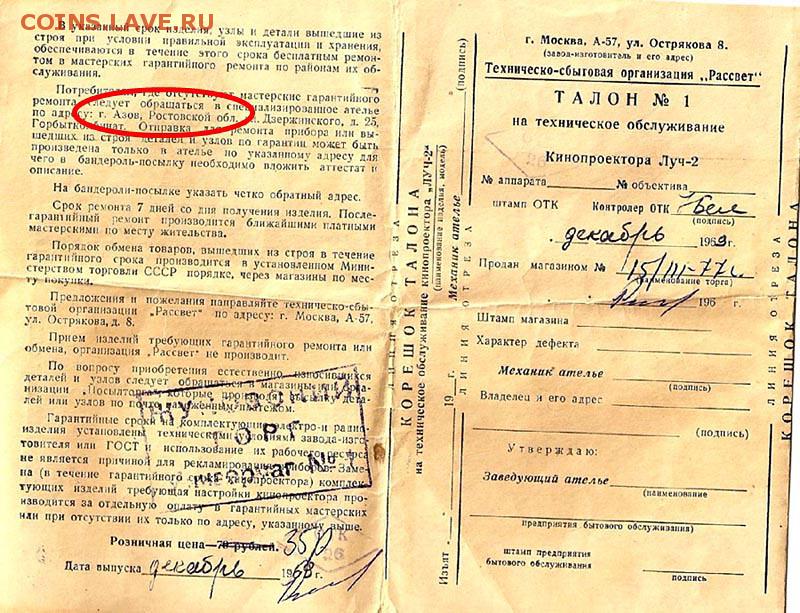 COINS.LAVE.RU
В указанный срок изделия, узлы и детали вышедшие из
строя при условии правильной эксплуатации и хранения,
обеспечиваются в течение этого срока бесплатным ремон-
том в мастерских гарантийного ремонта по районам их об-
служивания.
Потребителям, где отсутствуют мастерские гарантийного
ремонта следует обращаться в специализированное ателье
по адресу: г. Азов, Ростовской обл. Дзержинского, д. 25,
Горбыткомбинат. Отправка для ремонта прибора или вы-
шедших из строя деталей и узлов по гарантии может быть
произведена только в ателье по указанному адресу для
чего в бандероль-посылку необходимо вложить аттестат и
описание.
На бандероли-посылке указать четко обратный адрес.
Срок ремонта 7 дней со дня получения изделия. После-
гарантийный ремонт производится ближайшими платными
мастерскими по месту жительства.
Порядок обмена товаров, вышедших из строя в течение
гарантийного срока производится в установленном Мини-
стерством торговли СССР порядке, через магазины по мес-
ту покупки.
Предложения и пожелания направляйте техническо-сбы-
товой организации „Рассвет" по адресу: г. Москва, А-57,
ул. Острякова, д. 8.
Прием изделий требующих гарантийного ремонта или
обмена, организация „Рассвет" не производит.
По вопросу приобретения естественно износившихся
деталей и узлов следует обращаться в магазины или орга-
низации „Посылторга", которые производят высылку дета-
лей или узлов по почте наложенным платежом.
Гарантийные сроки на комплектующие электро-и радио-
изделия установлены техническими условиями завода-изго-
товителя или ГОСТ и использование их рабочего ресурса
не является причиной для рекламирования приборов. Заме-
на (в течение гарантийного срока кинопроектора) комплек-
тующих изделий требующая настройки кинопроектора про-
изводится за отдельную оплату в гарантийных мастерских
или при отсутствии их только по адресу, указанному выше.
ОРТ
№ 1
Розничная цена—70 рублей. 35р
Дата выпуска декабрь 1969г.
КОРЕШОК ТАЛОНА
на техническое обслуживание кинопроектора „ЛУЧ-2"
(наименование изделия, модель)
Изъят 19 г. Механик ателье
(подпись)
ЛИНИЯ ОТРЕЗА
г. Москва, А-57, ул. Острякова 8.
(завод-изготовитель и его адрес)
Техническо-сбытовая организация „Рассвет"
ТАЛОН № 1
на техническое обслуживание
Кинопроектора Луч-2
№ аппарата № объектива
штамп ОТК Контролер ОТК
(подпись)
декабрь 1969г.
Продан магазином № 15/III-77г.
(наименование торга)
196 г.
Штамп магазина
Характер дефекта
Механик ателье
(подпись)
Владелец и его адрес
Утверждаю:
Заведующий ателье
(наименование
предприятия бытового обслуживания)
штамп предприятия
бытового обслуживания
(подпись)
ЛИНИЯ ОТРЕЗА
КОРЕШОК ТАЛОНА